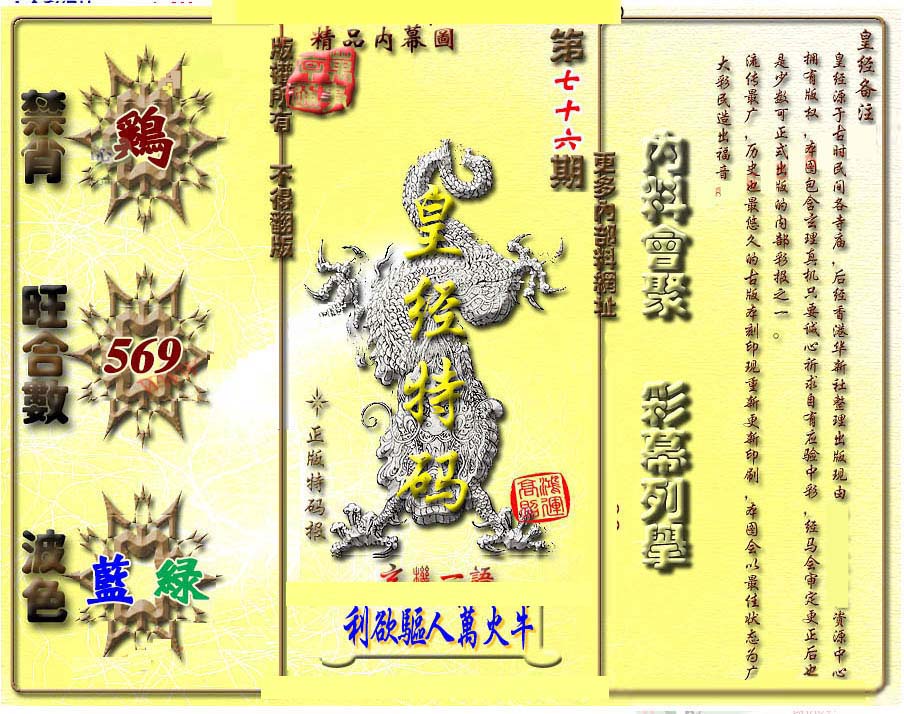 禁肖
鷄
旺合數
569
波色
藍 綠
精品内幕圖
版權所有 不得翻版
第七十六期
更多内部料網址
皇经特码
正版特码报
鴻運
高照
玄機一語
利欲驅人萬火牛
内料會聚 彩幕列舉
皇经备注
皇经源于古时民间各寺庙，后经香港华新社整理出版现由 资源中心
拥有版权，本图包含玄理真机只要诚心祈求自有应验中彩，经马会审定更正后也
是少数可正式出版的内部彩报之一。
流传最广，历史也最悠久的古版本刻印现重新更新印刷，本图会以最佳状态为广
大彩民造出福音